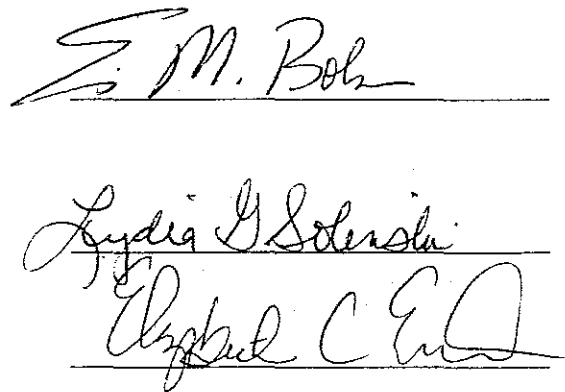 E. M. Bohn
Lydia G Solenski
Elizabeth C